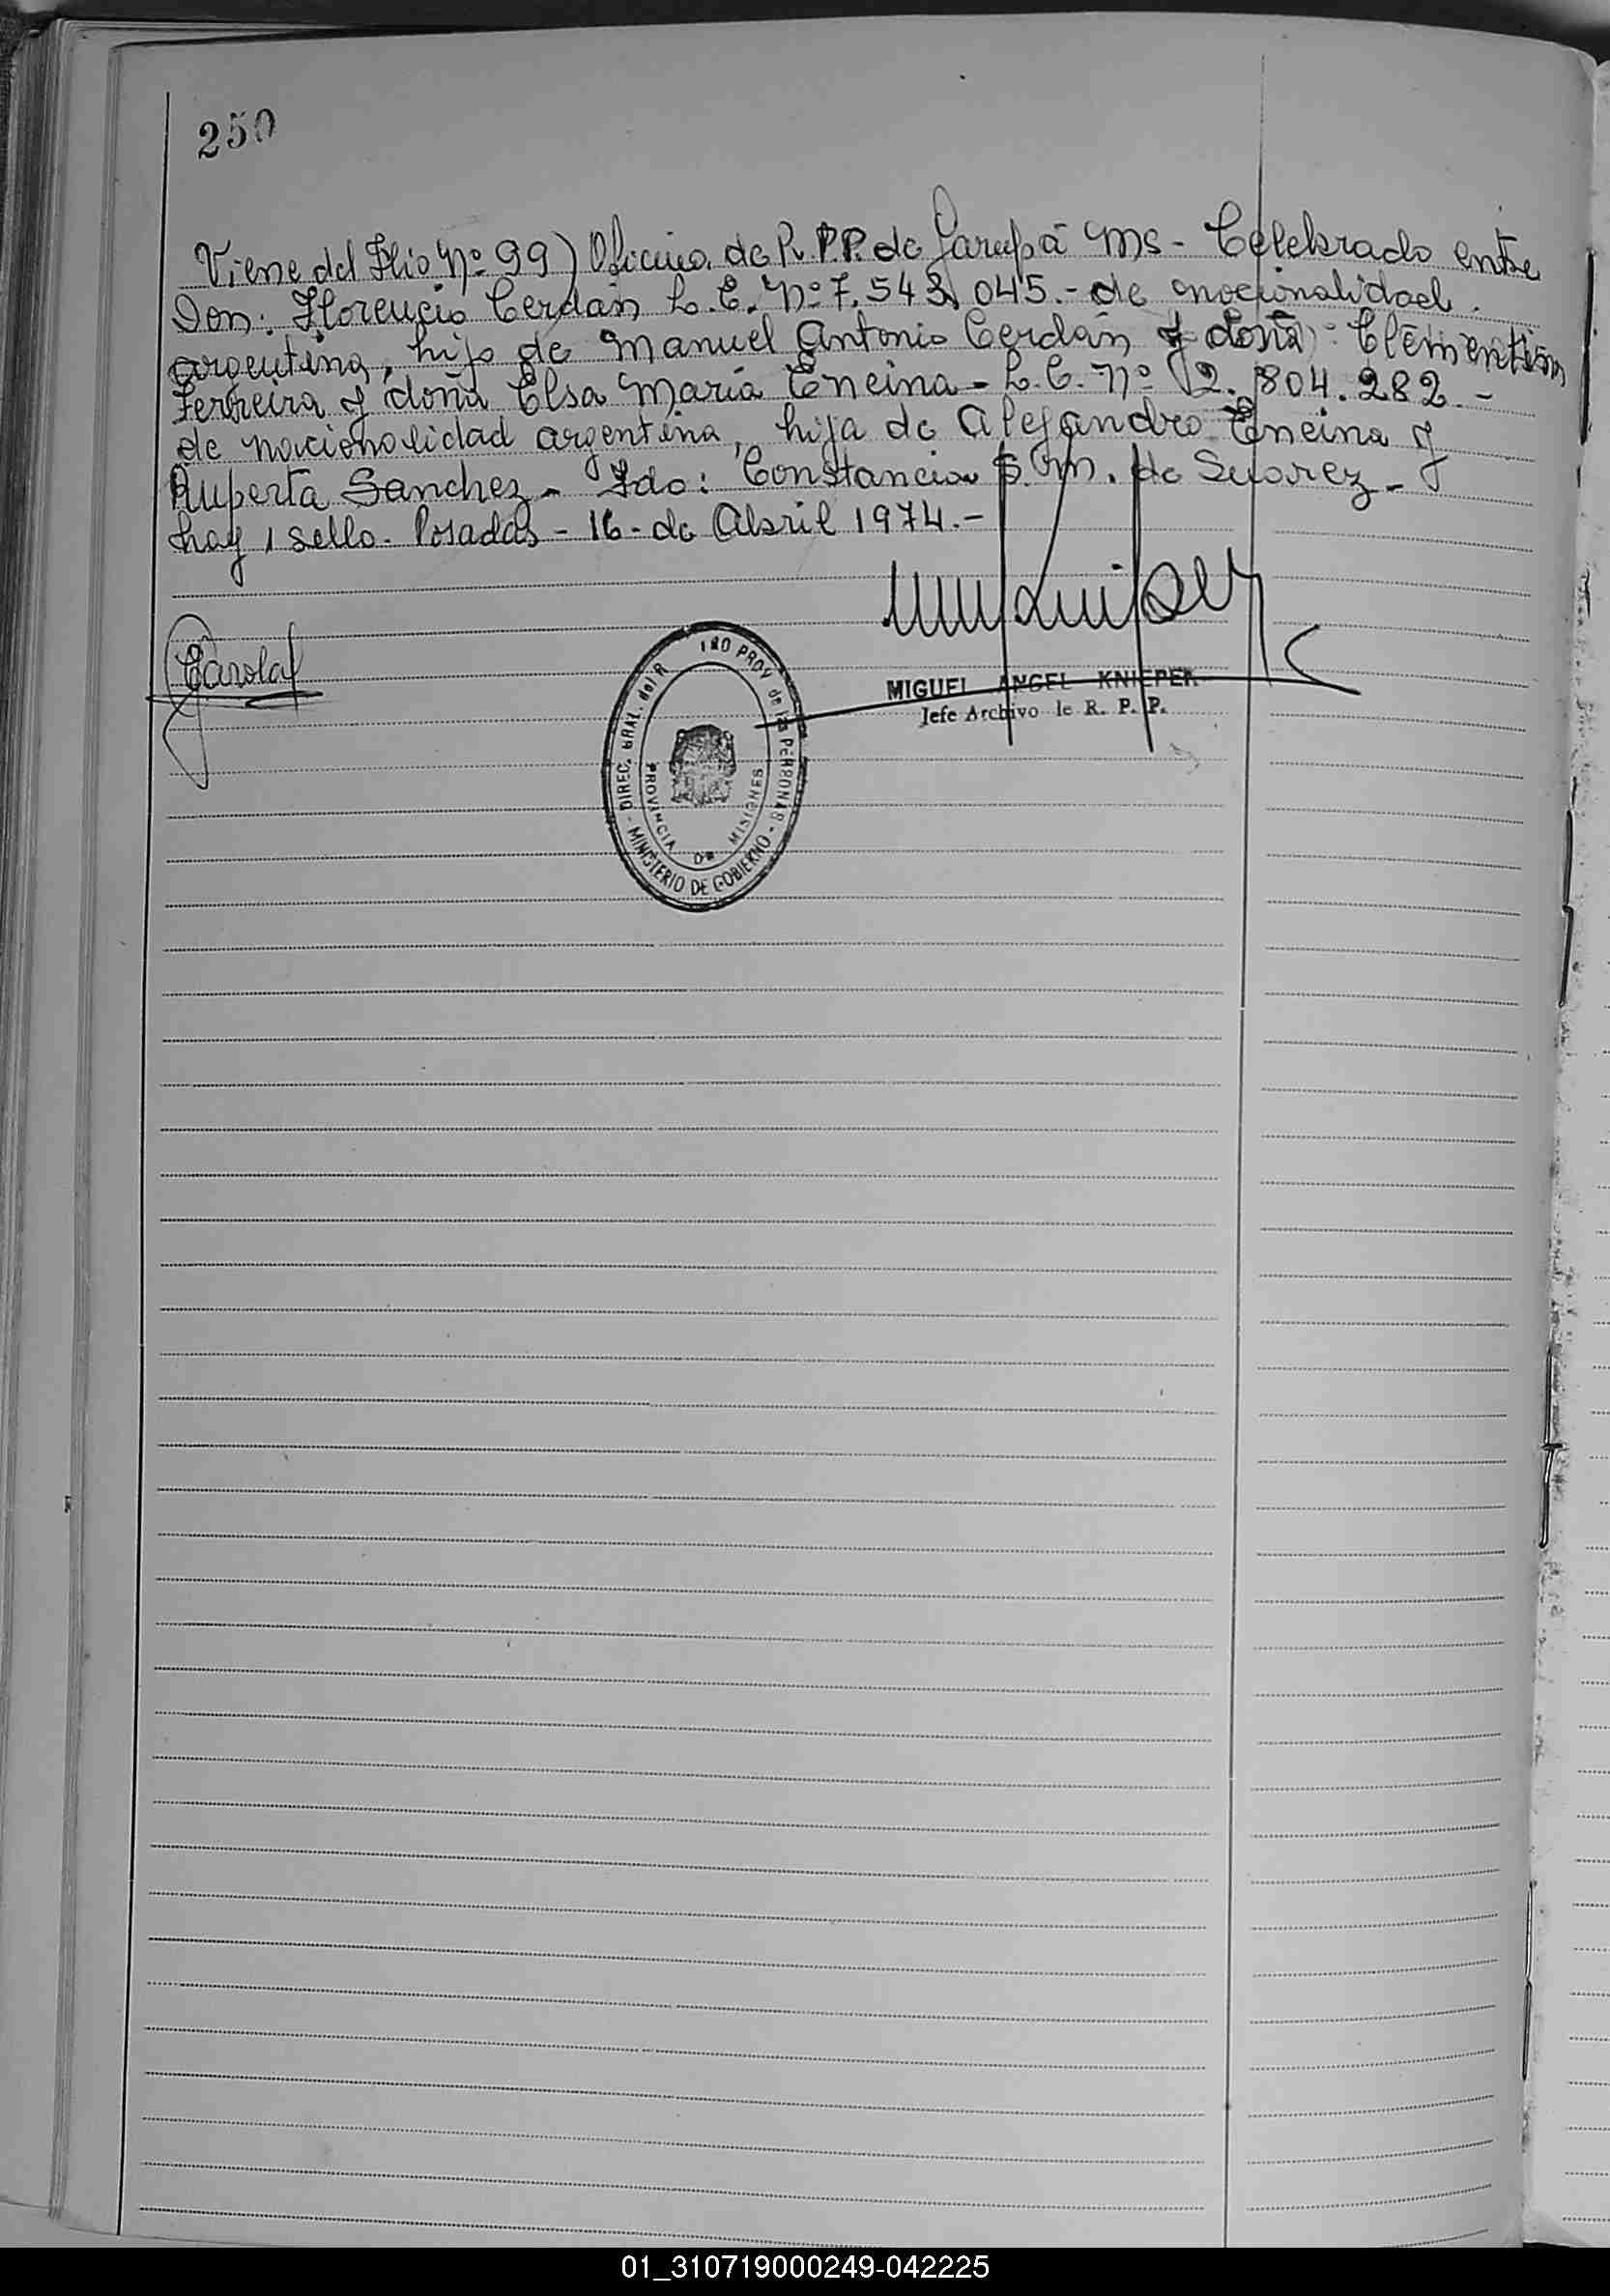 250
Viene del Flio Nº 99) Oficina de R.P.P. de Garupá Ms - Celebrado entre
Don: Florencio Cerdán L.E. Nº 7.543.045.- de nacionalidad
argentina, hijo de Manuel Antonio Cerdán y doña: Clementina
Ferreira y doña Elsa María Encina - L.C. Nº 2.804.282.-
de nacionalidad argentina, hija de Alejandro Encina y
Ruperta Sanchez - Fdo: Constancia S. M. de Suarez - y
hay 1 sello - Posadas - 16 - de Abril 1974.-
MIGUEL ANGEL KNIEPER
Jefe Archivo de R. P. P.
DIREC. GRAL. del R PROV de las PERSONAS
PROVINCIA DE MISIONES
- MINISTERIO DE GOBIERNO -
01_310719000249-042225